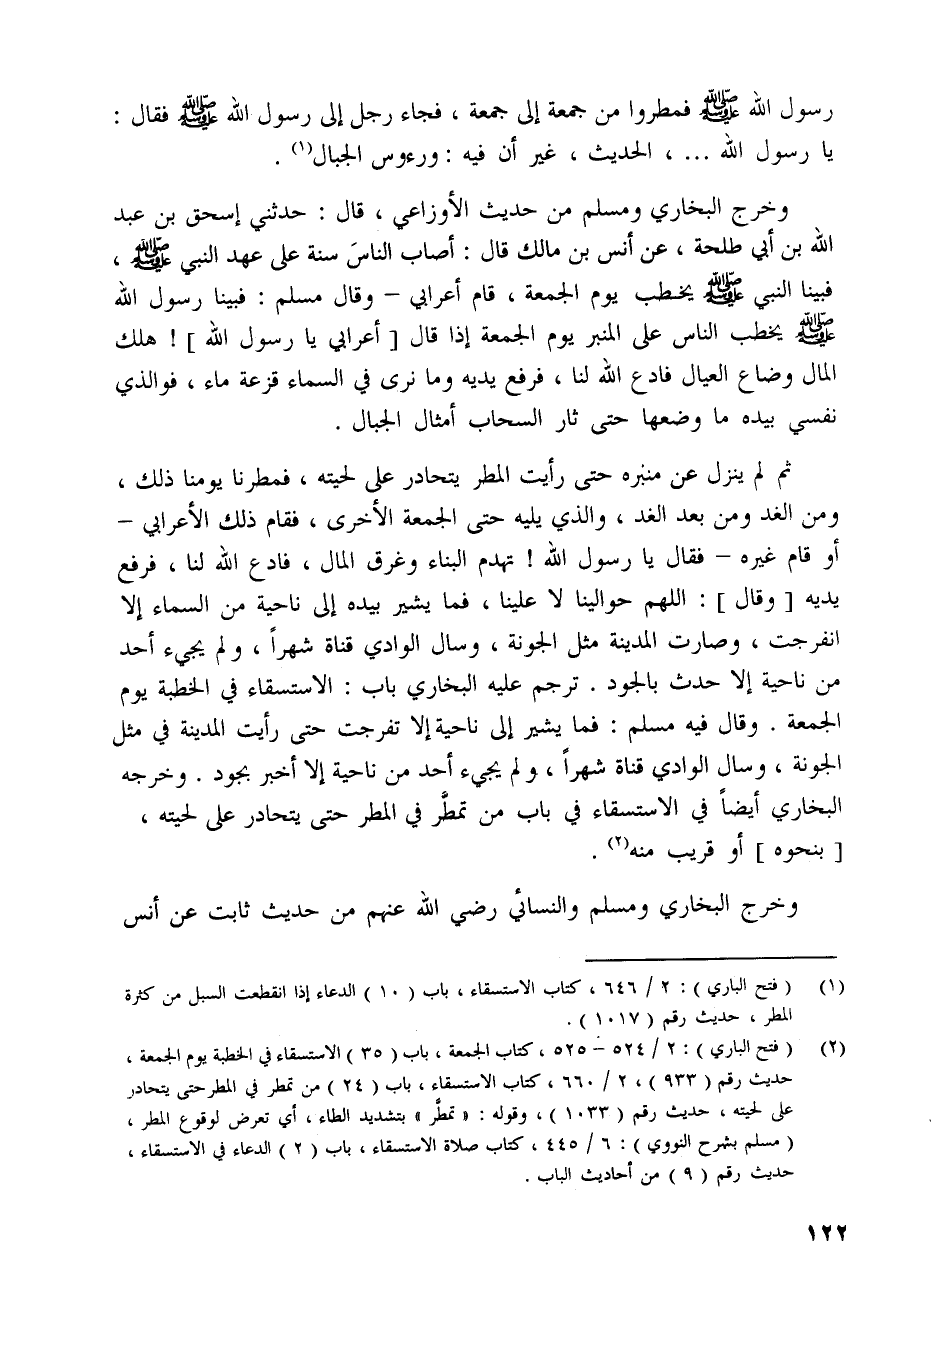 رسول الله ﷺ فمطروا من جمعة إلى جمعة ، فجاء رجل إلى رسول الله ﷺ فقال :
يا رسول الله ... ، الحديث ، غير أن فيه : ورءوس الجبال(١) .
وخرج البخاري ومسلم من حديث الأوزاعي ، قال : حدثني إسحق بن عبد
الله بن أبي طلحة ، عن أنس بن مالك قال : أصاب الناسَ سنة على عهد النبي ﷺ ،
فبينا النبي ﷺ يخطب يوم الجمعة ، قام أعرابي – وقال مسلم : فبينا رسول الله
ﷺ يخطب الناس على المنبر يوم الجمعة إذا قال [ أعرابي يا رسول الله ] ! هلك
المال وضاع العيال فادع الله لنا ، فرفع يديه وما نرى في السماء قزعة ماء ، فوالذي
نفسي بيده ما وضعها حتى ثار السحاب أمثال الجبال .
ثم لم ينزل عن منبره حتى رأيت المطر يتحادر على لحيته ، فمطرنا يومنا ذلك ،
ومن الغد ومن بعد الغد ، والذي يليه حتى الجمعة الأخرى ، فقام ذلك الأعرابي –
أو قام غيره – فقال يا رسول الله ! تهدم البناء وغرق المال ، فادع الله لنا ، فرفع
يديه [ وقال ] : اللهم حوالينا لا علينا ، فما يشير بيده إلى ناحية من السماء إلا
انفرجت ، وصارت المدينة مثل الجونة ، وسال الوادي قناة شهراً ، ولم يجيء أحد
من ناحية إلا حدث بالجود . ترجم عليه البخاري باب : الاستسقاء في الخطبة يوم
الجمعة . وقال فيه مسلم : فما يشير إلى ناحية إلا تفرجت حتى رأيت المدينة في مثل
الجونة ، وسال الوادي قناة شهراً ، ولم يجيء أحد من ناحية إلا أخبر بجود . وخرجه
البخاري أيضاً في الاستسقاء في باب من تمطَّر في المطر حتى يتحادر على لحيته ،
[ بنحوه ] أو قريب منه(٢) .
وخرج البخاري ومسلم والنسائي رضي الله عنهم من حديث ثابت عن أنس
(١) ( فتح الباري ) : ٢ / ٦٤٦ ، كتاب الاستسقاء ، باب ( ١٠ ) الدعاء إذا انقطعت السبل من كثرة
المطر ، حديث رقم ( ١٠١٧ ) .
(٢) ( فتح الباري ) : ٢ / ٥٢٤ – ٥٢٥ ، كتاب الجمعة ، باب ( ٣٥ ) الاستسقاء في الخطبة يوم الجمعة ،
حديث رقم ( ٩٣٣ ) ، ٢ / ٦٦٠ ، كتاب الاستسقاء ، باب ( ٢٤ ) من تمطر في المطر حتى يتحادر
على لحيته ، حديث رقم ( ١٠٣٣ ) ، وقوله : « تمطَّر » بتشديد الطاء ، أي تعرض لوقوع المطر ،
( مسلم بشرح النووي ) : ٦ / ٤٤٥ ، كتاب صلاة الاستسقاء ، باب ( ٢ ) الدعاء في الاستسقاء ،
حديث رقم ( ٩ ) من أحاديث الباب .
١٢٢